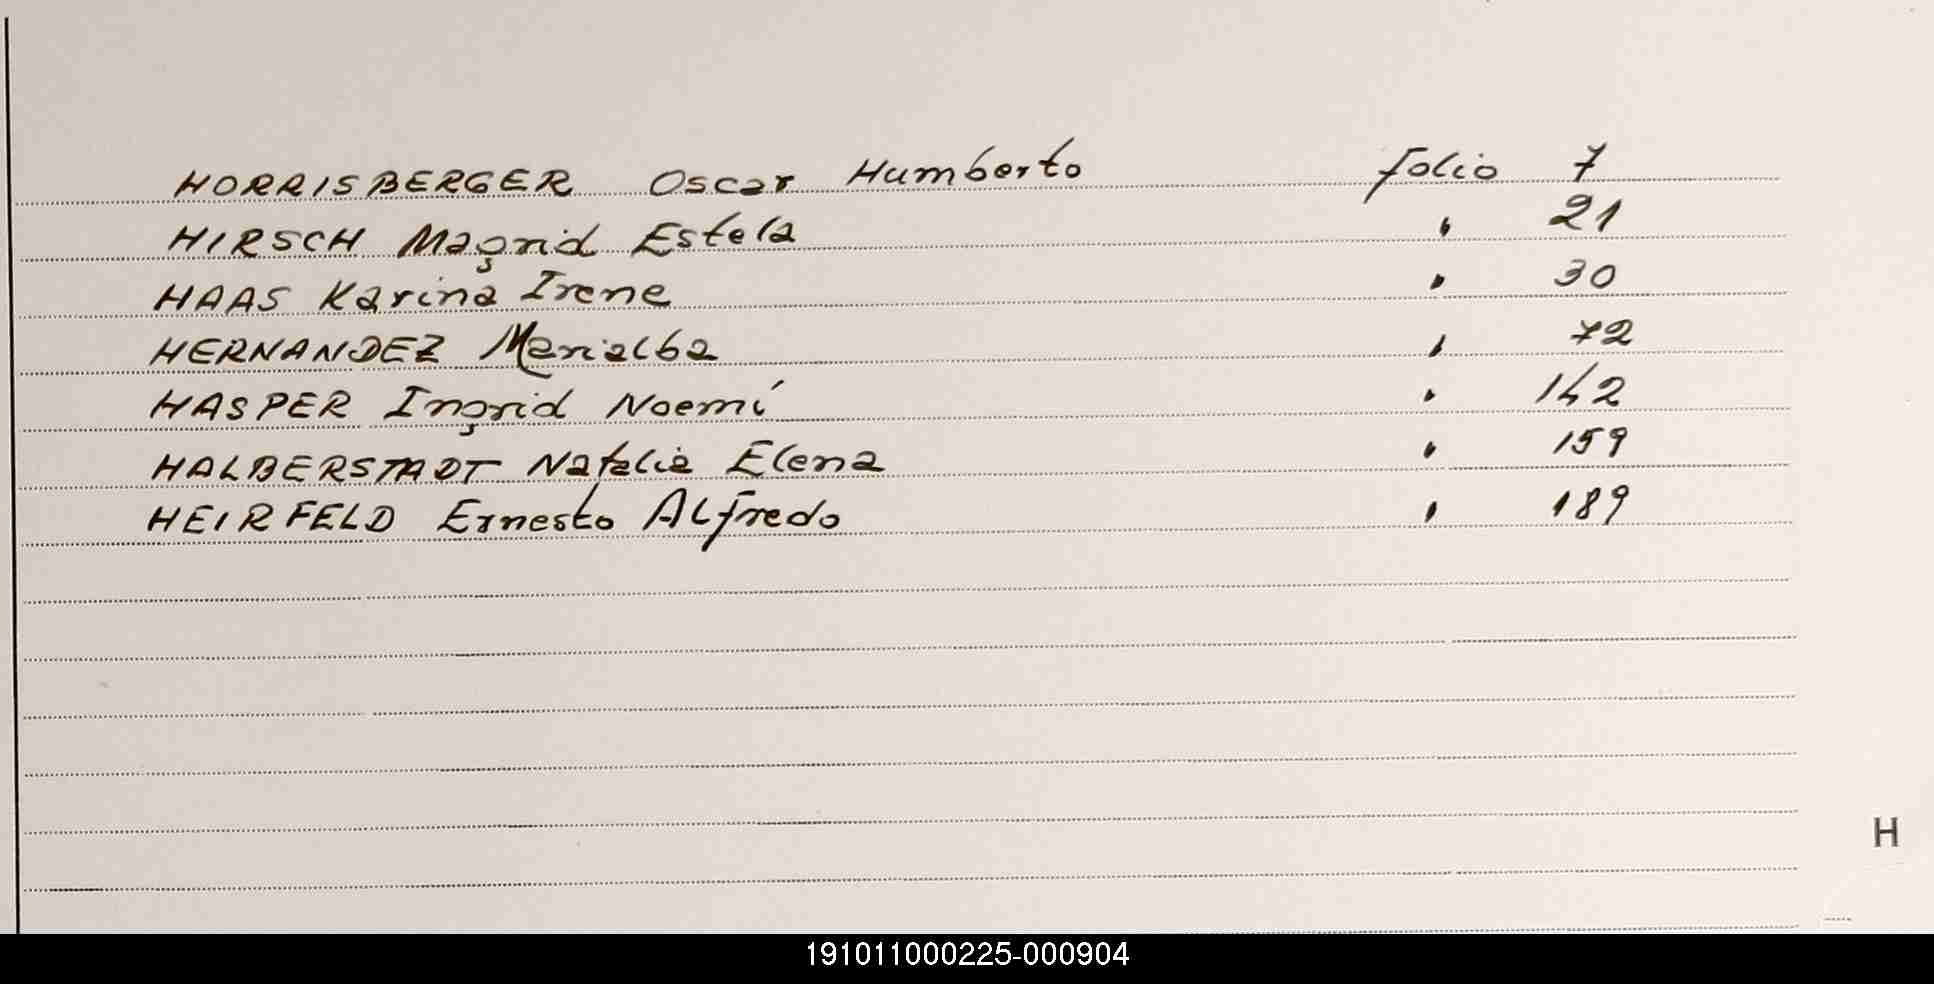 HORRISBERGER Oscar Humberto folio 7
HIRSCH Magrid Estela " 21
HAAS Karina Irene " 30
HERNANDEZ Marialba " 72
HASPER Ingrid Noemí " 142
HALBERSTADT Natalia Elena " 159
HEIRFELD Ernesto Alfredo " 189
H
191011000225-000904